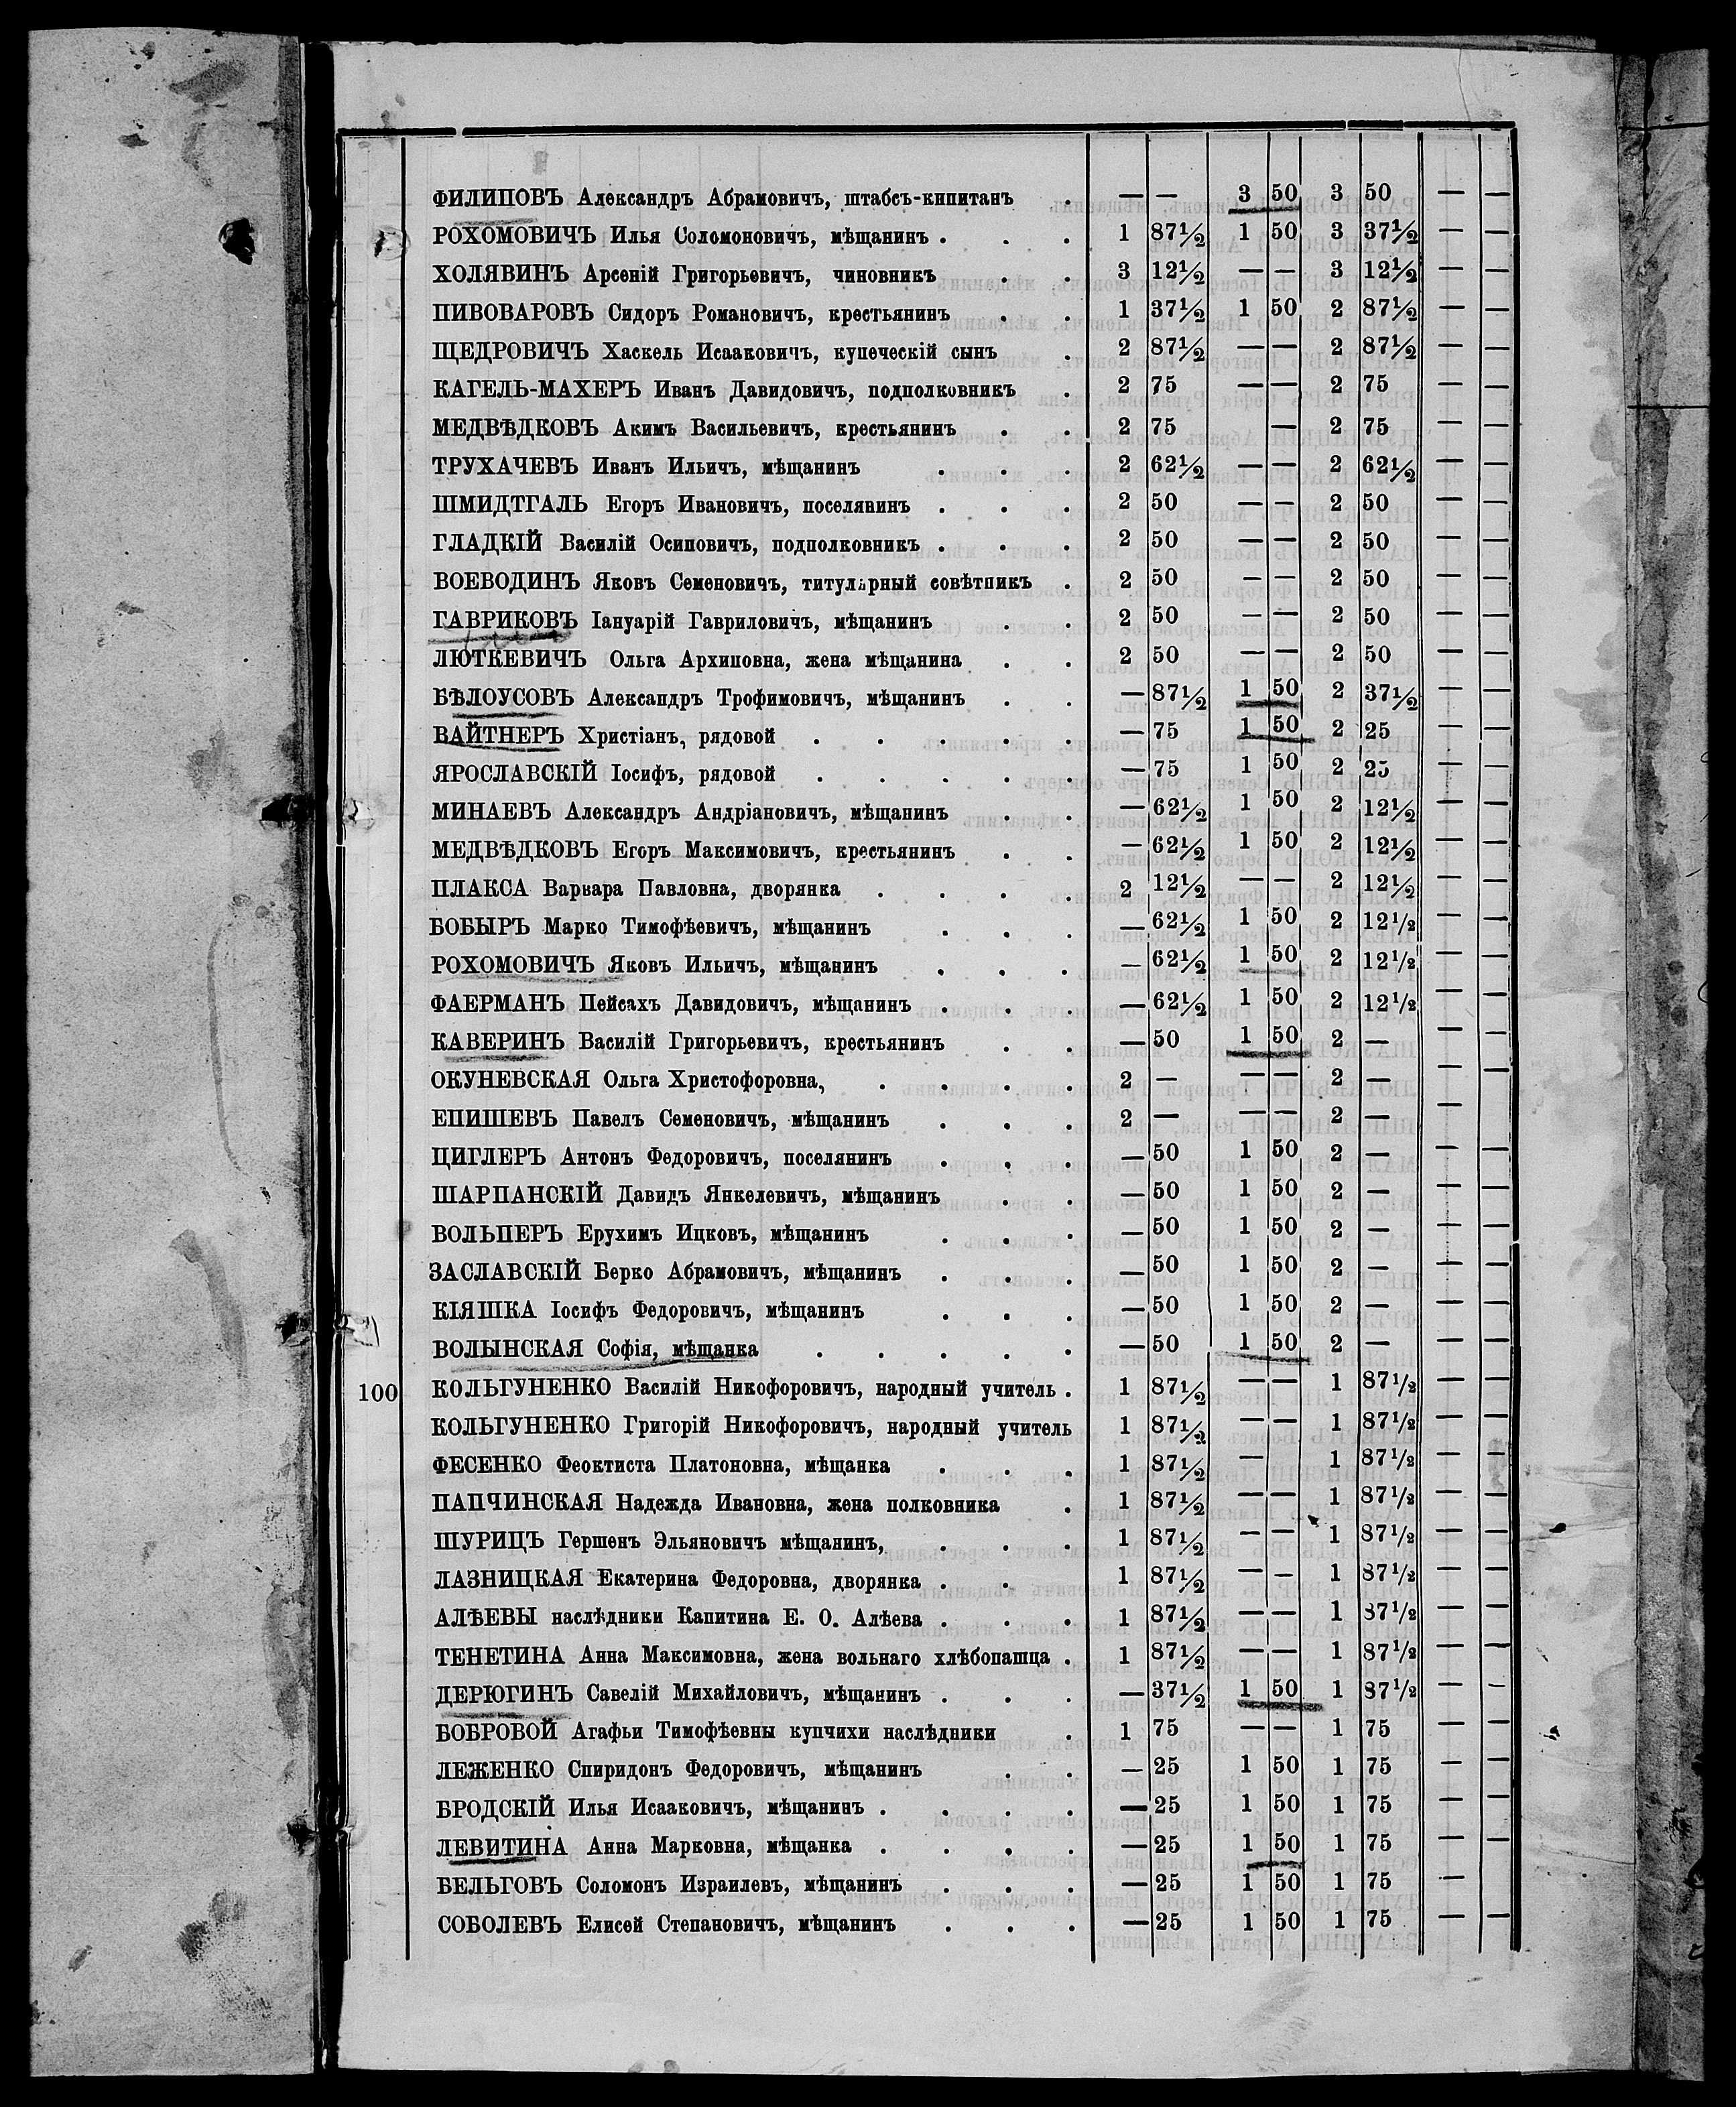 ФИЛИПОВЪ Александръ Абрамовичъ, штабсъ-кнпитанъ . — — 3 50 3 50 — —
РОХОМОВИЧЪ Илья Соломоновичъ, мѣщанинъ . . . 1 87½ 1 50 3 37½ — —
ХОЛЯВИНЪ Арсеній Григорьевичъ, чиновникъ . . 3 12½ — — 3 12½ — —
ПИВОВАРОВЪ Сидоръ Романовичъ, крестьянинъ . . 1 37½ 1 50 2 87½ — —
ЩЕДРОВИЧЪ Хаскель Исааковичъ, купеческій сынъ . 2 87½ — — 2 87½ — —
КАГЕЛЬ-МАХЕРЪ Иванъ Давидовичъ, подполковникъ . 2 75 — — 2 75 — —
МЕДВѢДКОВЪ Акимъ Васильевичъ, крестьянинъ . . 2 75 — 2 75 — —
ТРУХАЧЕВЪ Иванъ Ильичъ, мѣщанинъ . . . 2 62½ — — 2 62½ — —
ШМИДТГАЛЬ Егоръ Ивановичъ, поселянинъ . . . 2 50 — — 2 50 — —
ГЛАДКІЙ Василій Осиповичъ, подполковникъ . . . 2 50 — — 2 50 — —
ВОЕВОДИНЪ Яковъ Семеновичъ, титулярный совѣтникъ . 2 50 — — 2 50 — —
ГАВРИКОВЪ Іануарій Гавриловичъ, мѣщанинъ . . 2 50 — — 2 50 — —
ЛЮТКЕВИЧЪ Ольга Архиповна, жена мѣщанина . . 2 50 — — 2 50 — —
БѢЛОУСОВЪ Александръ Трофимовичъ, мѣщанинъ . . — 87½ 1 50 2 37½ — —
ВАЙТНЕРЪ Христіанъ, рядовой . . . . . — 75 1 50 2 25 — —
ЯРОСЛАВСКІЙ Іосифъ, рядовой . . . . . — 75 1 50 2 25 — —
МИНАЕВЪ Александръ Андріановичъ, мѣщанинъ . . — 62½ 1 50 2 12½ — —
МЕДВѢДКОВЪ Егоръ Максимовичъ, крестьянинъ . . — 62½ 1 50 2 12½ — —
ПЛАКСА Варвара Павловна, дворянка . . . . 2 12½ — — 2 12½ — —
БОБЫРЪ Марко Тимофѣевичъ, мѣщанинъ . . . — 62½ 1 50 2 12½ — —
РОХОМОВИЧЪ Яковъ Ильичъ, мѣщанинъ . . . — 62½ 1 50 2 12½ — —
ФАЕРМАНЪ Пейсахъ Давидовичъ, мѣщанинъ . . . — 62½ 1 50 2 12½ — —
КАВЕРИНЪ Василій Григорьевичъ, крестьянинъ . . — 50 1 50 2 — — —
ОКУНЕВСКАЯ Ольга Христофоровна, . . . . 2 — — — 2 — — —
ЕПИШЕВЪ Павелъ Семеновичъ, мѣщанинъ . . . 2 — — — 2 — — —
ЦИГЛЕРЪ Антонъ Федоровичъ, поселянинъ . . . — 50 1 50 2 — — —
ШАРПАНСКІЙ Давидъ Янкелевичъ, мѣщанинъ . . — 50 1 50 2 — — —
ВОЛЬПЕРЪ Ерухимъ Ицковъ, мѣщанинъ . . . — 50 1 50 2 — — —
ЗАСЛАВСКІЙ Берко Абрамовичъ, мѣщанинъ . . . — 50 1 50 2 — — —
КІЯШКА Іосифъ Федоровичъ, мѣщанинъ . . . — 50 1 50 2 — — —
ВОЛЫНСКАЯ Софія, мѣщанка . . . . . — 50 1 50 2 — — —
100 КОЛЬГУНЕНКО Василій Никофоровичъ, народный учитель . 1 87½ — — 1 87½ — —
КОЛЬГУНЕНКО Григорій Никофоровичъ, народный учитель 1 87½ — — 1 87½ — —
ФЕСЕНКО Феоктиста Платоновна, мѣщанка . . . 1 87½ — 1 87½ — —
ПАПЧИНСКАЯ Надежда Ивановна, жена полковника . 1 87½ — — 1 87½ — —
ШУРИЦЪ Гершенъ Эльяновичъ мѣщанинъ, . . . 1 87½ — — 1 87½ — —
ЛАЗНИЦКАЯ Екатерина Федоровна, дворянка . . . 1 87½ — — 1 87½ — —
АЛѢЕВЫ наслѣдники Капитина Е. О. Алѣева . . . 1 87½ — — 1 87½ — —
ТЕНЕТИНА Анна Максимовна, жена вольнаго хлѣбопашца . 1 87½ — — 1 87½ — —
ДЕРЮГИНЪ Савелій Михайловичъ, мѣщанинъ . . . — 37½ 1 50 1 87½ — —
БОБРОВОЙ Агафьи Тимофѣевны купчихи наслѣдники . 1 75 — — 1 75 — —
ЛЕЖЕНКО Спиридонъ Федоровичъ, мѣщанинъ . . — 25 1 50 1 75 — —
БРОДСКІЙ Илья Исааковичъ, мѣщанинъ . . . . — 25 1 50 1 75 — —
ЛЕВИТИНА Анна Марковна, мѣщанка . . . . — 25 1 50 1 75 — —
БЕЛЬГОВЪ Соломонъ Израилевъ, мѣщанинъ . . . — 25 1 50 1 75 — —
СОБОЛЕВЪ Елисей Степановичъ, мѣщанинъ . . . — 25 1 50 1 75 — —